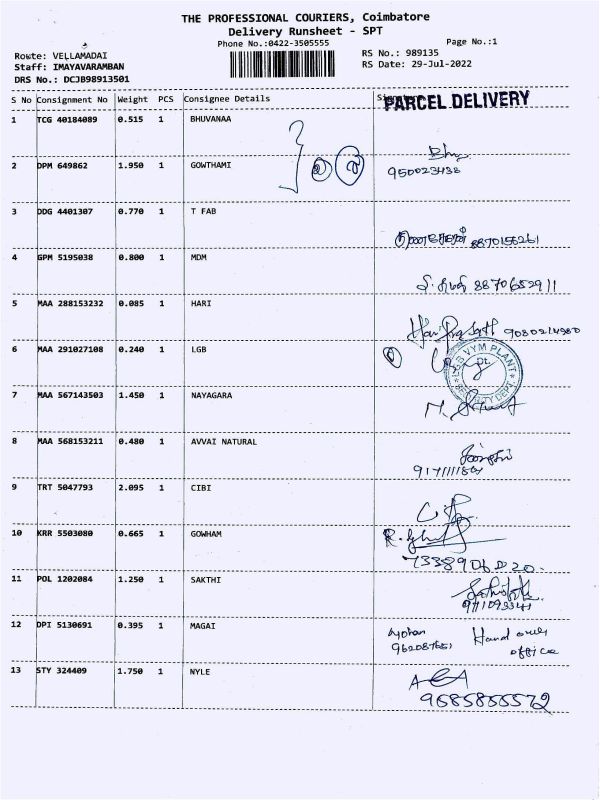 THE PROFESSIONAL COURIERS, Coimbatore
Delivery Runsheet - SPT
Phone No.:0422-3505555
Page No.:1
Route: VELLAMADAI
RS No.: 989135
Staff: IMAYAVARAMBAN
RS Date: 29-Jul-2022
DRS No.: DCJB98913501
S No Consignment No Weight PCS Consignee Details
PARCEL DELIVERY
1 TCG 40184089 0.515 1 BHUVANAA
2 DPM 649862 1.950 1 GOWTHAMI
3 DDG 4401307 0.770 1 T FAB
8870156261
4 GPM 5195038 0.800 1 MDM
8870652911
5 MAA 288153232 0.085 1 HARI
6 MAA 291027108 0.240 1 LGB
LGB VYM PLANT
SECURITY DEPT.
7 MAA 567143503 1.450 1 NAYAGARA
8 MAA 568153211 0.480 1 AVVAI NATURAL
9 TRT 5047793 2.095 1 CIBI
10 KRR 5503080 0.665 1 GOWHAM
11 POL 1202084 1.250 1 SAKTHI
12 DPI 5130691 0.395 1 MAGAI
Hand over
office
13 STY 324409 1.750 1 NYLE